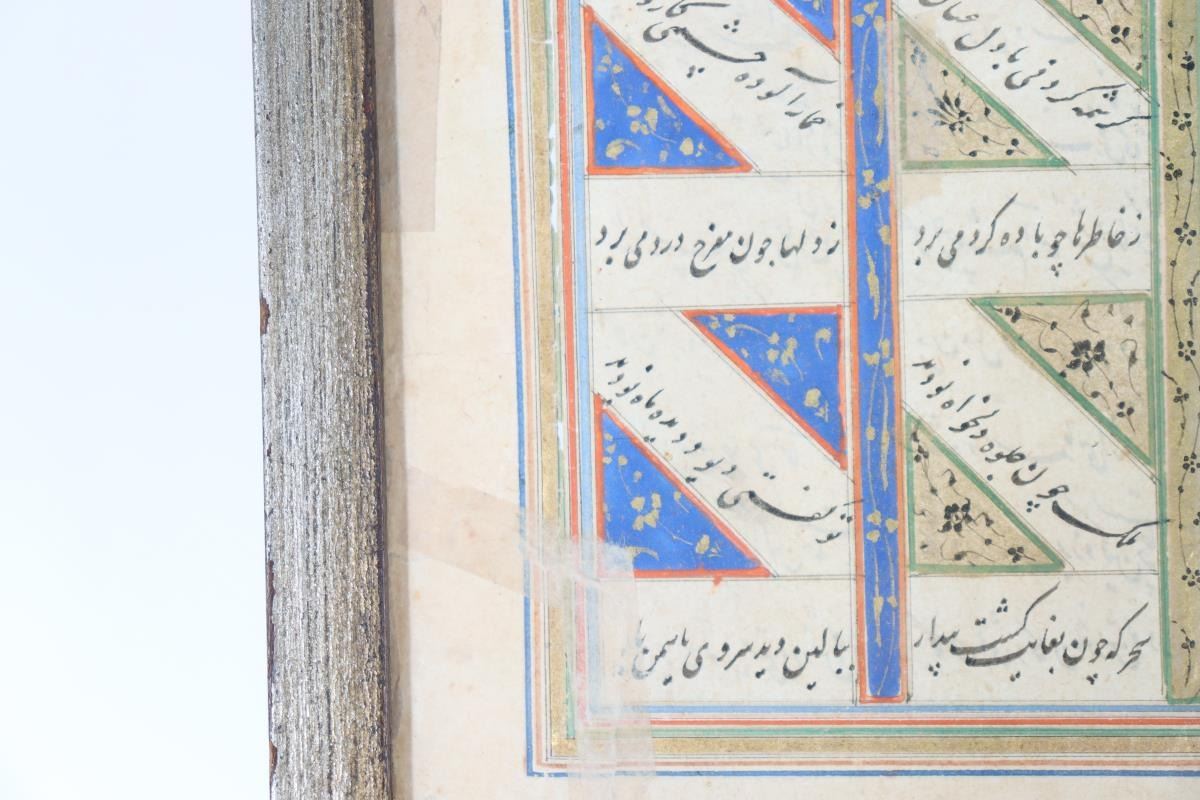 کرشمه کردنی با دل
خمارآلوده چشمی
ز خاطرها چو باده گرد می برد
ز دلها چون مفرح درد می برد
ملک چون جلوه دلخواه نو دید
تو گفتی دیو دیده ماه نو دید
سحرگه چون بغایت گشت بیدار
ببالین دید سروی یاسمن